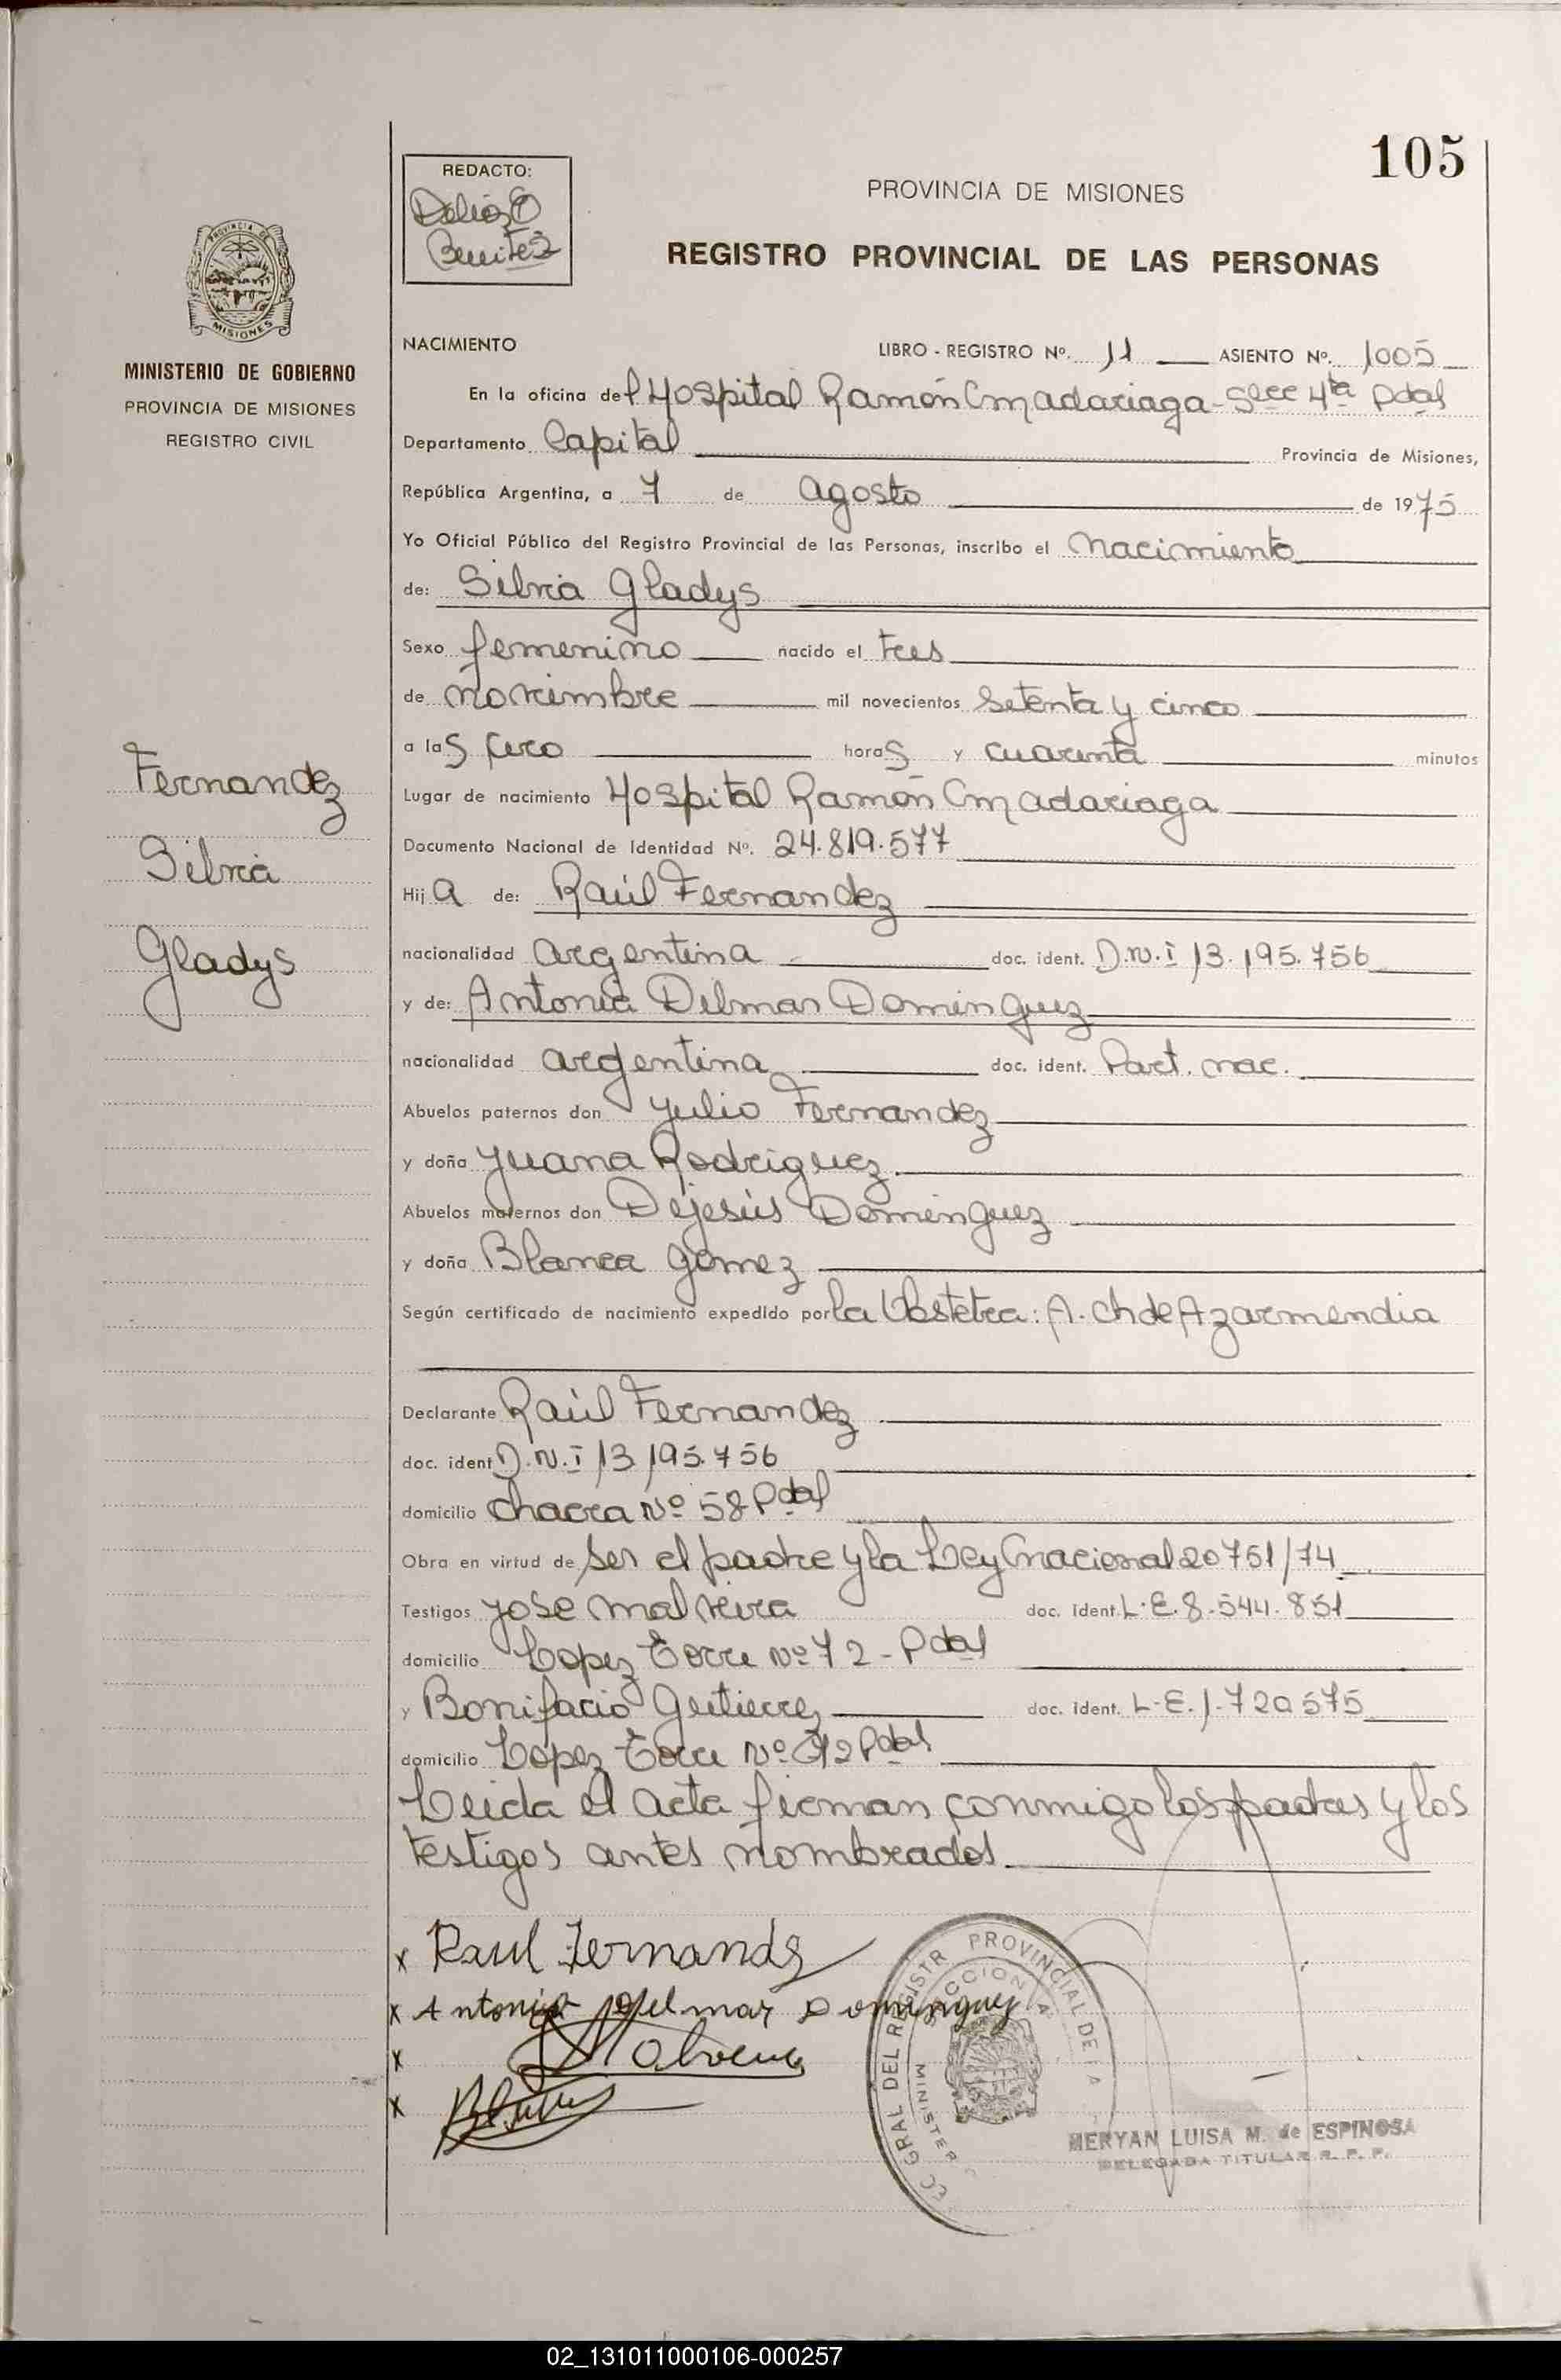 105
REDACTO:
Delia
Benitez
PROVINCIA DE MISIONES
REGISTRO PROVINCIAL DE LAS PERSONAS
PROVINCIA DE
MISIONES
MINISTERIO DE GOBIERNO
PROVINCIA DE MISIONES
REGISTRO CIVIL
Fernandez
Silvia
Gladys
NACIMIENTO LIBRO - REGISTRO Nº. 11 ASIENTO Nº. 1005
En la oficina del Hospital Ramón Madariaga - Secc 4ta Pdas
Departamento Capital Provincia de Misiones,
República Argentina, a 7 de agosto de 1975
Yo Oficial Público del Registro Provincial de las Personas, inscribo el nacimiento
de: Silvia Gladys
Sexo femenino nacido el tres
de noviembre mil novecientos setenta y cinco
a las cero horas y cuarenta minutos
Lugar de nacimiento Hospital Ramón Madariaga
Documento Nacional de Identidad Nº. 24.819.577
Hija de: Raúl Fernandez
nacionalidad argentina doc. ident. D.N.I 13.195.756
y de: Antonia Delmar Dominguez
nacionalidad argentina doc. ident. Part. nac.
Abuelos paternos don Julio Fernandez
y doña Juana Rodriguez
Abuelos maternos don Dejesús Dominguez
y doña Blanca Gomez
Según certificado de nacimiento expedido por la Obstetra: A. Ch de Azarmendia
Declarante Raúl Fernandez
doc. ident D.N.I 13.195.756
domicilio chacra Nº 58 Pdas
Obra en virtud de ser el padre y la Ley Nacional 20751/74
Testigos Jose Malveira doc. ident. L.E. 8.544.851
domicilio Lopez Torre Nº 72 - Pdas
y Bonifacio Gutierrez doc. ident. L.E. 1.720575
domicilio Lopez Torre Nº 2 Pdas
Leida el acta firman conmigo los padres y los
testigos antes nombrados
x Raul Fernandez
x Antonia delmar Dominguez
x
x
GRAL DEL REGISTR PROVINCIAL DE
SECCION 4ª
MINISTER
MERYAN LUISA M. de ESPINOSA
DELEGADA TITULAR R. P. P.
02_131011000106-000257